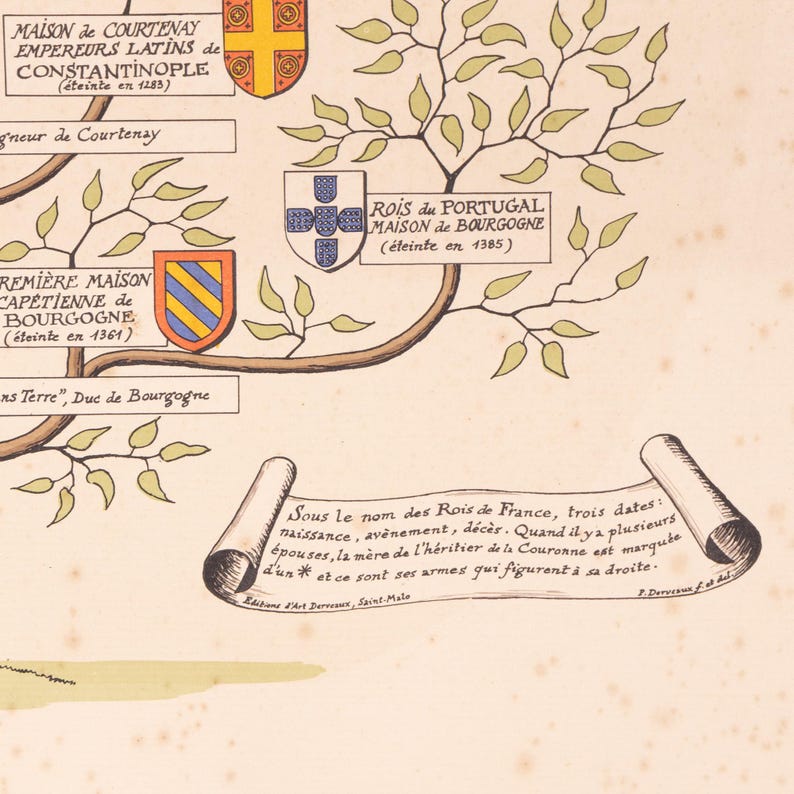 MAISON de COURTENAY
EMPEREURS LATINS de
CONSTANTINOPLE
(éteinte en 1283)
gneur de Courtenay
ROIS du PORTUGAL
MAISON de BOURGOGNE
(éteinte en 1385)
REMIÈRE MAISON
CAPÉTIENNE de
BOURGOGNE
(éteinte en 1361)
ns Terre", Duc de Bourgogne
Sous le nom des Rois de France, trois dates:
naissance, avènement, décès. Quand il y a plusieurs
épouses, la mère de l'héritier de la Couronne est marquée
d'un * et ce sont ses armes qui figurent à sa droite.
Editions d'Art Derveaux, Saint-Malo
P. Derveaux f. et del.